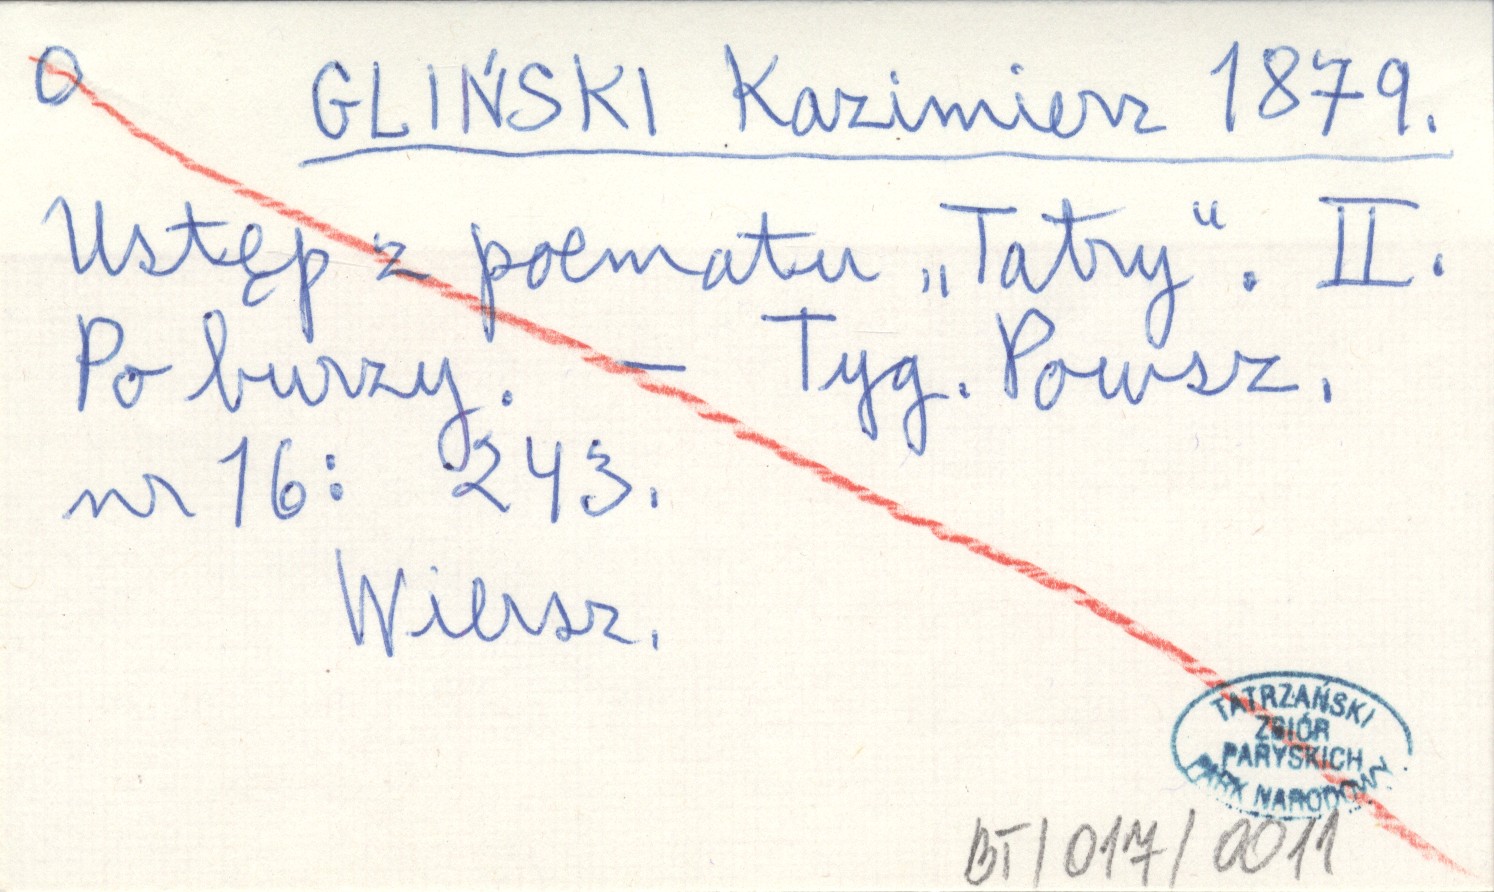 O GLIŃSKI Kazimierz 1879.
Ustęp z poematu „Tatry“. II.
Po burzy. — Tyg. Powsz.
nr 16: 243.
Wiersz.
TATRZAŃSKI
ZBIÓR
PARYSKICH
PARK NARODOWY
BT/017/0011